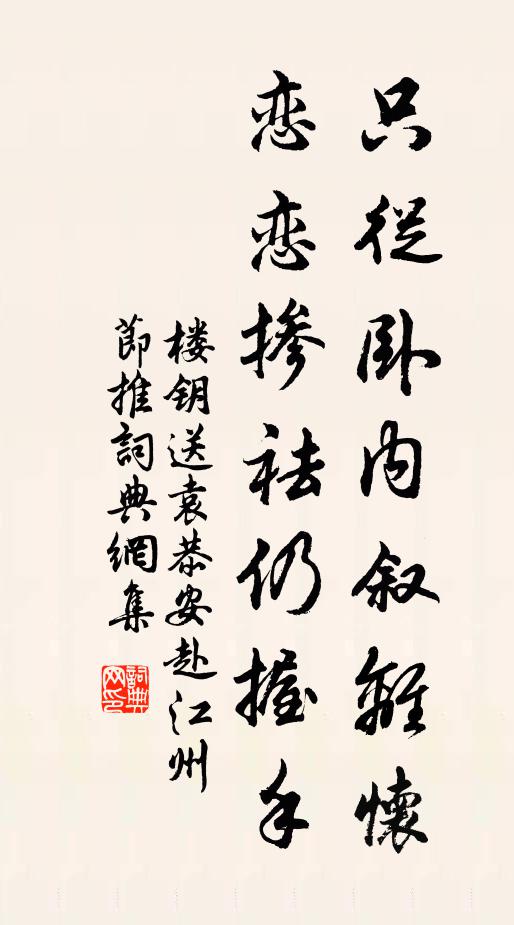 只從卧内叙離懷
恋恋掺袪仍握手
楼钥送袁恭安赴江州
節推詞典網集
詞典
网印